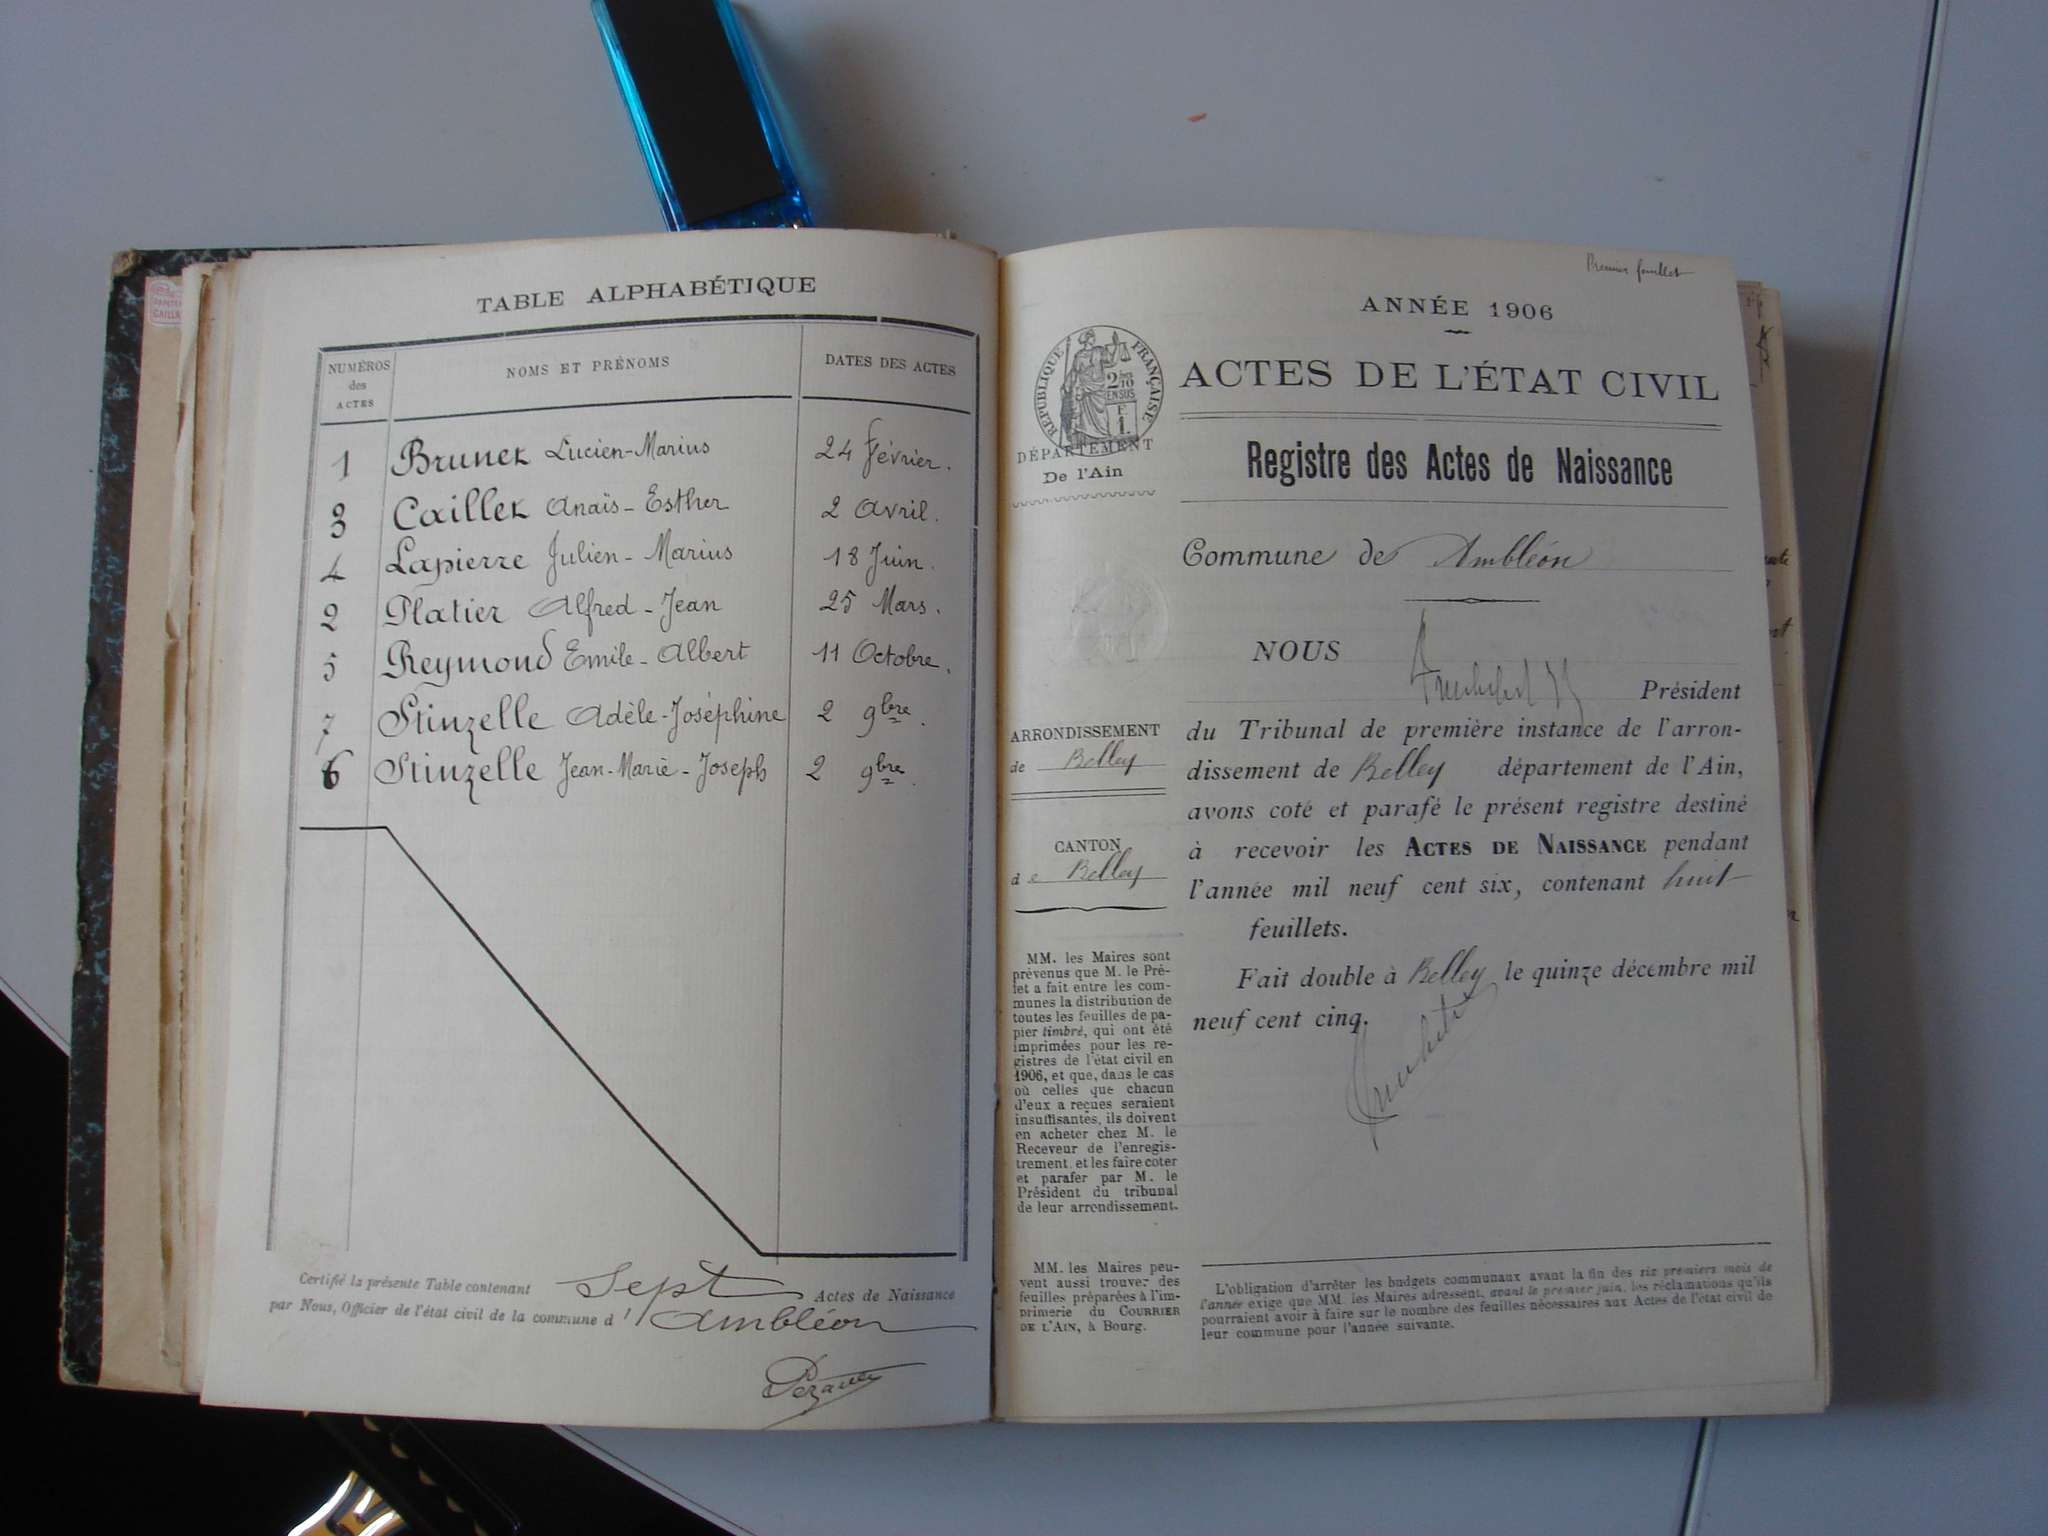 TABLE ALPHABÉTIQUE
NUMÉROS des ACTES
NOMS ET PRÉNOMS
DATES DES ACTES
1 Brunet Lucien-Marius 24 Février.
3 Caillet Anaïs-Esther 2 Avril.
4 Lapierre Julien-Marius 18 Juin.
2 Platier Alfred-Jean 25 Mars.
5 Reymond Emile-Albert 11 Octobre.
7 Stinzelle Adèle-Joséphine 2 9bre.
6 Stinzelle Jean-Marie-Joseph 2 9bre.
Certifié la présente Table contenant Sept Actes de Naissance
par Nous, Officier de l'état civil de la commune d'Ambléon
Premier feuillet
ANNÉE 1906
RÉPUBLIQUE FRANÇAISE
2
10
EN SUS
F
1.
DÉPARTEMENT
De l'Ain
ACTES DE L'ÉTAT CIVIL
Registre des Actes de Naissance
Commune de Ambléon
NOUS
Président
du Tribunal de première instance de l'arron-
dissement de Belley département de l'Ain,
avons coté et parafé le présent registre destiné
à recevoir les ACTES DE NAISSANCE pendant
l'année mil neuf cent six, contenant huit
feuillets.
Fait double à Belley, le quinze décembre mil
neuf cent cinq.
ARRONDISSEMENT
de Belley
CANTON
de Belley
MM. les Maires sont
prévenus que M. le Pré-
fet a fait entre les com-
munes la distribution de
toutes les feuilles de pa-
pier timbré, qui ont été
imprimées pour les re-
gistres de l'état civil en
1906, et que, dans le cas
où celles que chacun
d'eux a reçues seraient
insuffisantes, ils doivent
en acheter chez M. le
Receveur de l'enregis-
trement, et les faire coter
et parafer par M. le
Président du tribunal
de leur arrondissement.
MM. les Maires peu-
vent aussi trouver des
feuilles préparées à l'im-
primerie du COURRIER
DE L'AIN, à Bourg.
L'obligation d'arrêter les budgets communaux avant la fin des six premiers mois de
l'année exige que MM. les Maires adressent, avant le premier juin, les réclamations qu'ils
pourraient avoir à faire sur le nombre des feuilles nécessaires aux Actes de l'état civil de
leur commune pour l'année suivante.